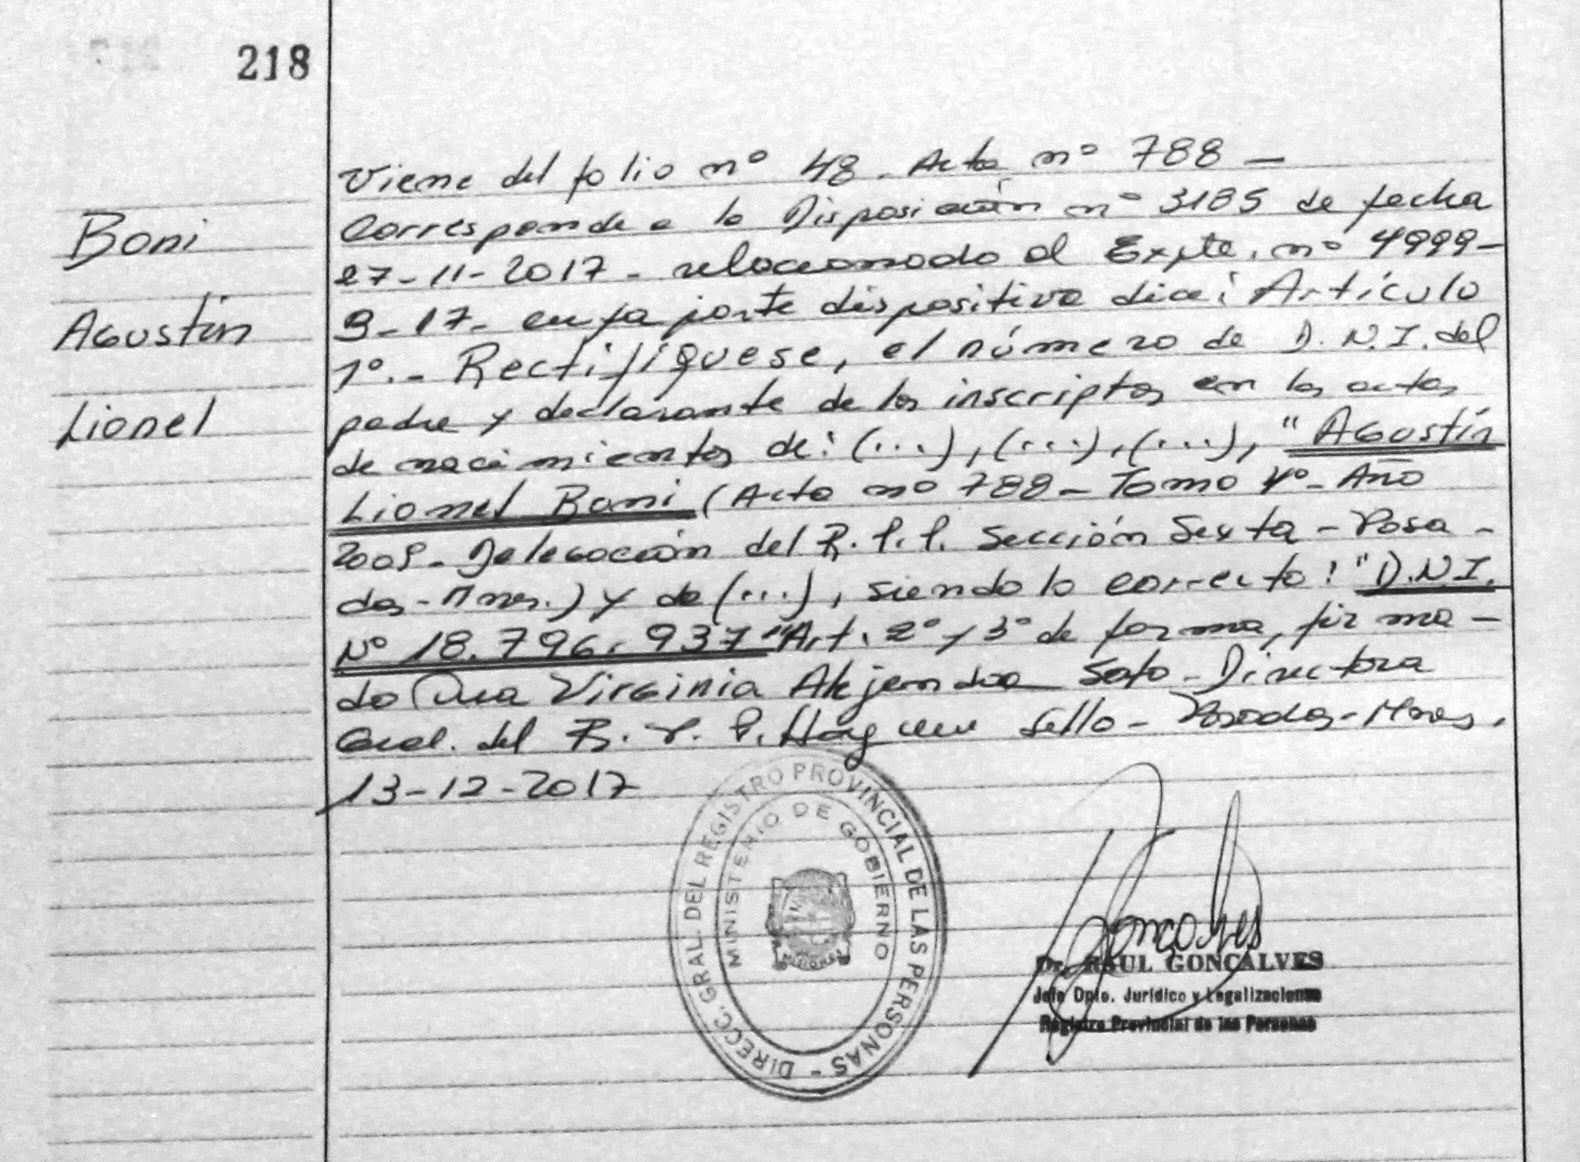 218
Boni
Agustín
Lionel
Viene del folio nº 48 - Acta nº 788 -
Corresponde a la Disposición nº 3185 de fecha
27-11-2017 - relacionado al Expte. nº 4999-
9-17- cuya parte dispositiva dice: Artículo
1º.- Rectifíquese, el número de D.N.I. del
padre y declarante de los inscriptos en las actas
de nacimientos de: (...), (...), (...), "Agustín
Lionel Boni (Acta nº 788 - Tomo 4º - Año
2009 - Delegación del R.P.P. Sección Sexta - Posa-
das - Mnes.) y de (...), siendo lo correcto: "D.N.I.
Nº 18.796.937" Art. 2º y 3º de forma, firma-
do Virginia Alejandra Soto - Directora
Gral. del R.P.P. Hay un sello - Posadas - Mnes.
13-12-2017
DIRECC. GRAL. DEL REGISTRO PROVINCIAL DE LAS PERSONAS -
MINISTERIO DE GOBIERNO
MISIONES
Goncalves
Dr. RAUL GONCALVES
Jefe Dpto. Jurídico y Legalizaciones
Registro Provincial de las Personas